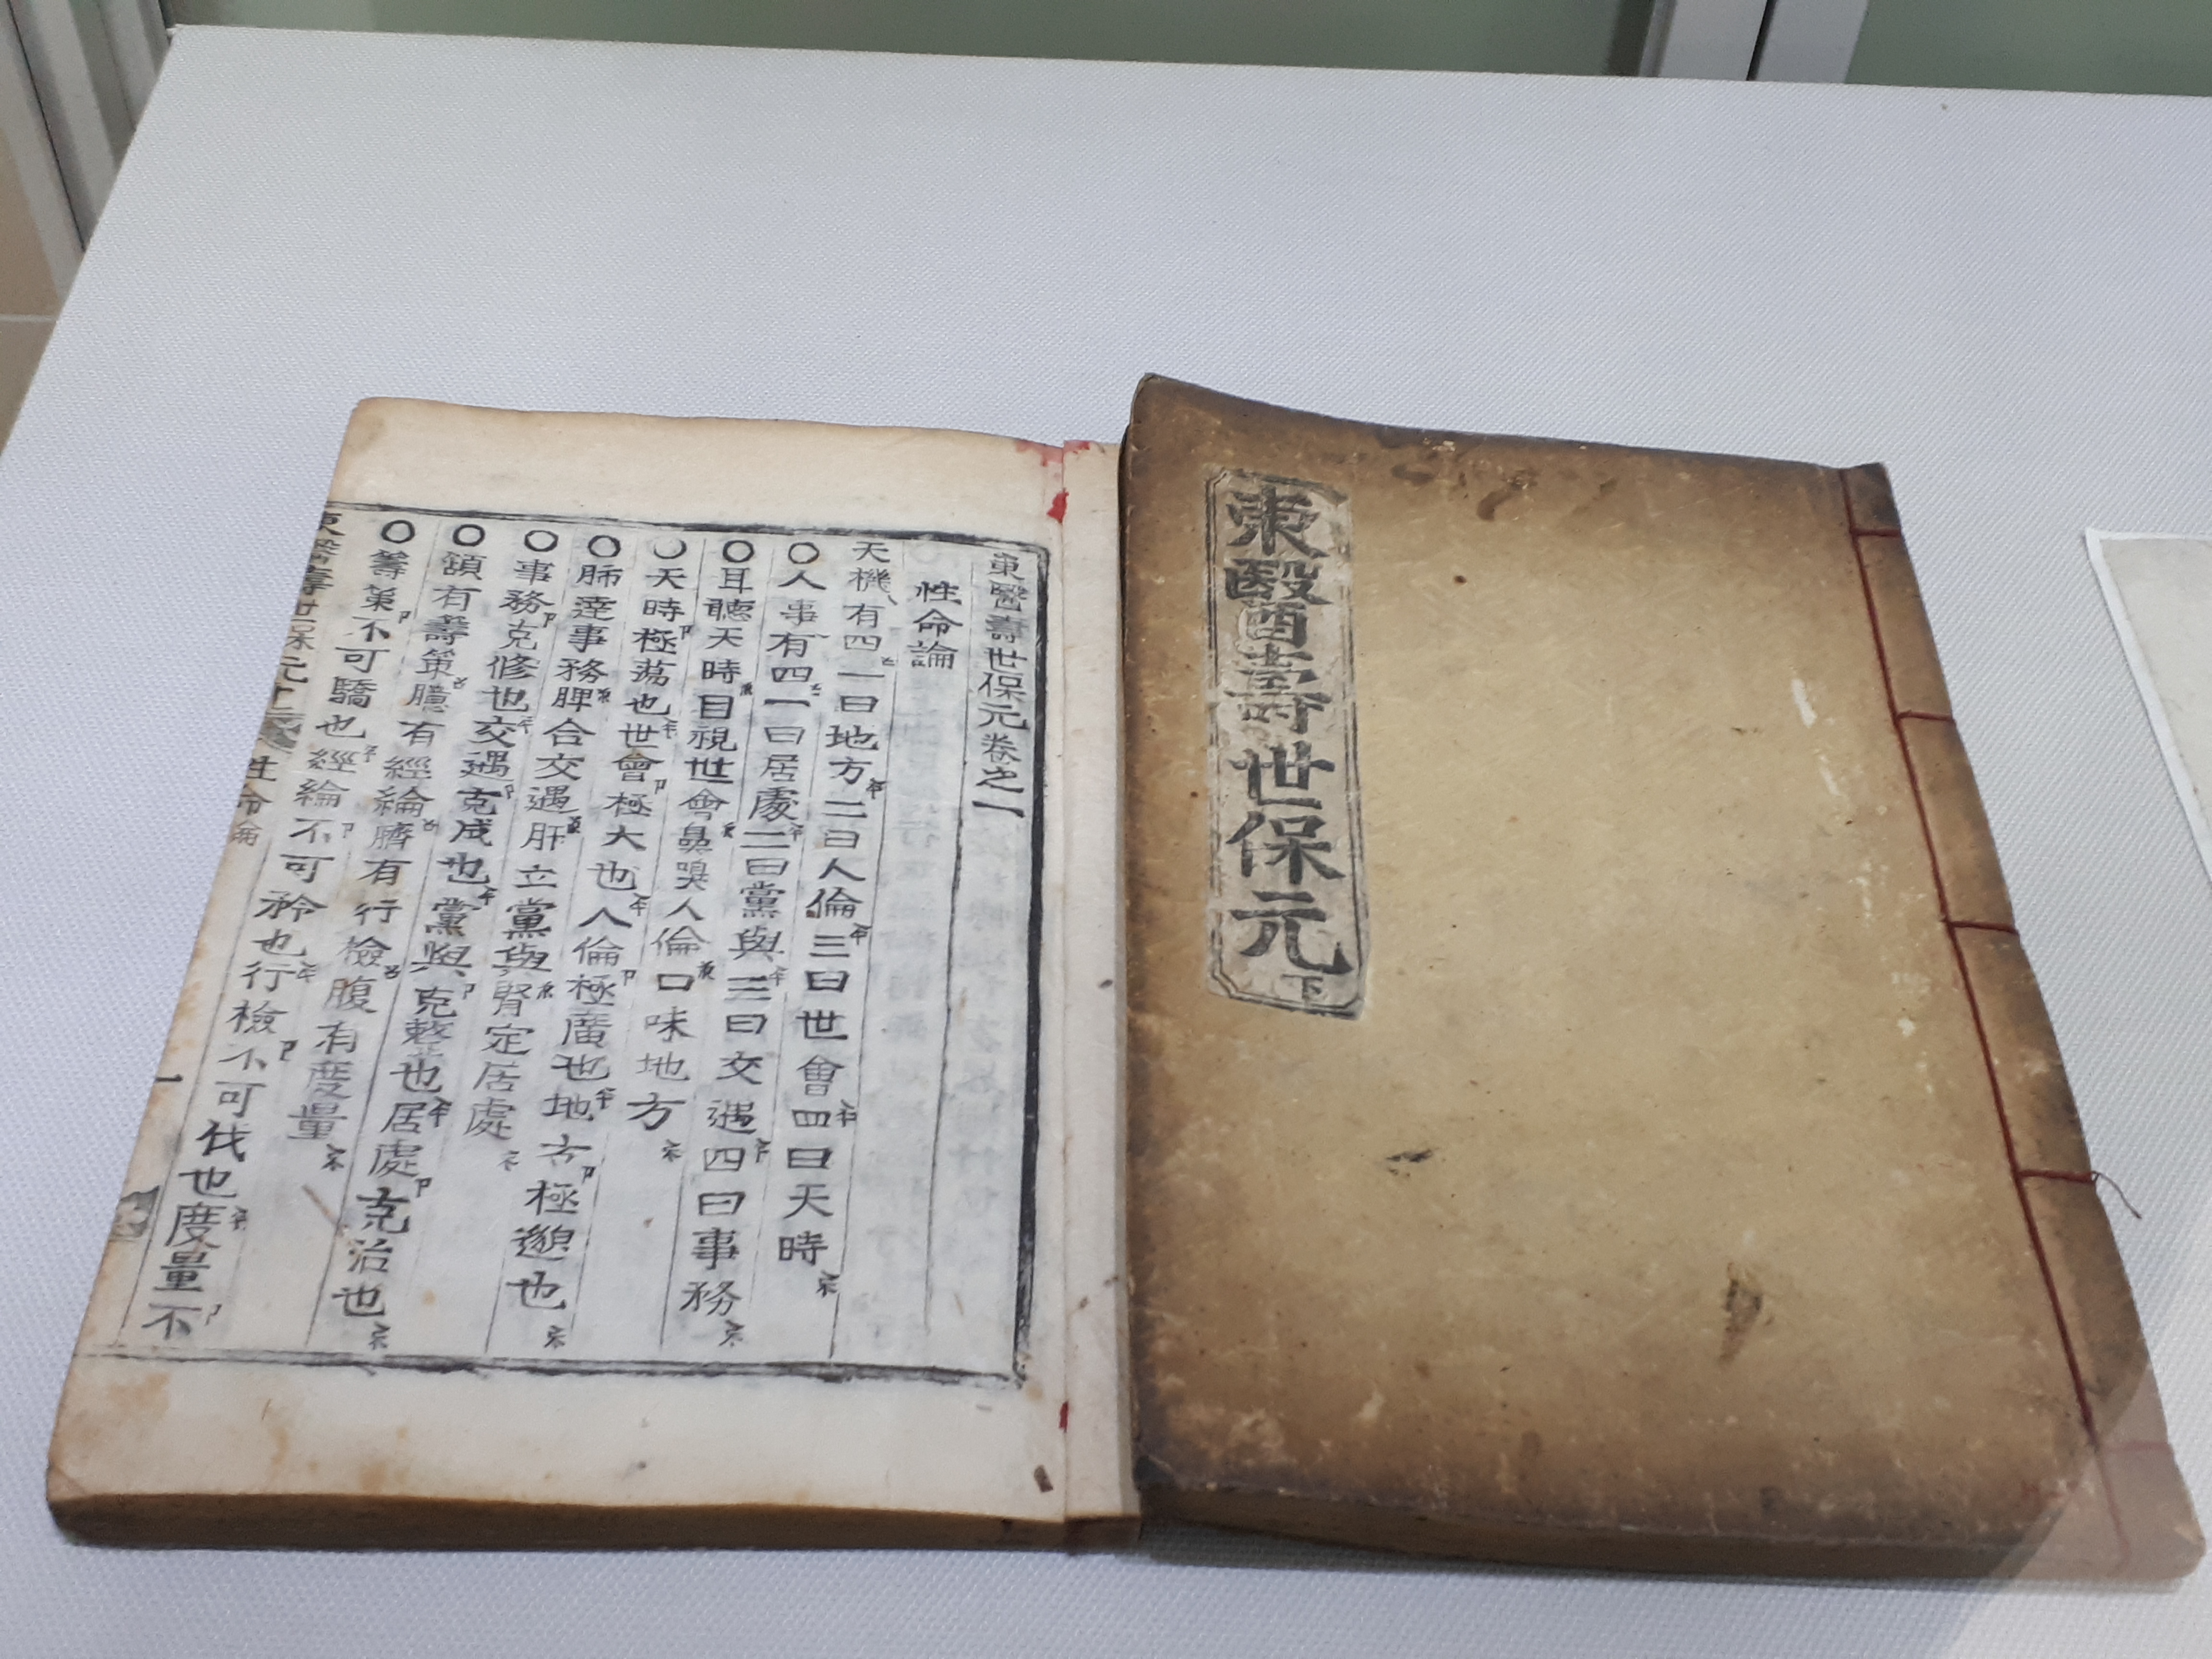 東醫壽世保元 下
東醫壽世保元卷之一
性命論
天機有四一曰地方二曰人倫三曰世會四曰天時
○人事有四一曰居處二曰黨與三曰交遇四曰事務
○耳聽天時目視世會鼻嗅人倫口味地方
○天時極蕩也世會極大也人倫極廣也地方極邈也
○肺達事務脾合交遇肝立黨與腎定居處
○事務克修也交遇克成也黨與克整也居處克治也
○頷有籌策臆有經綸臍有行檢腹有度量
○籌策不可驕也經綸不可矜也行檢不可伐也度量不
東醫壽世保元 性命論 一